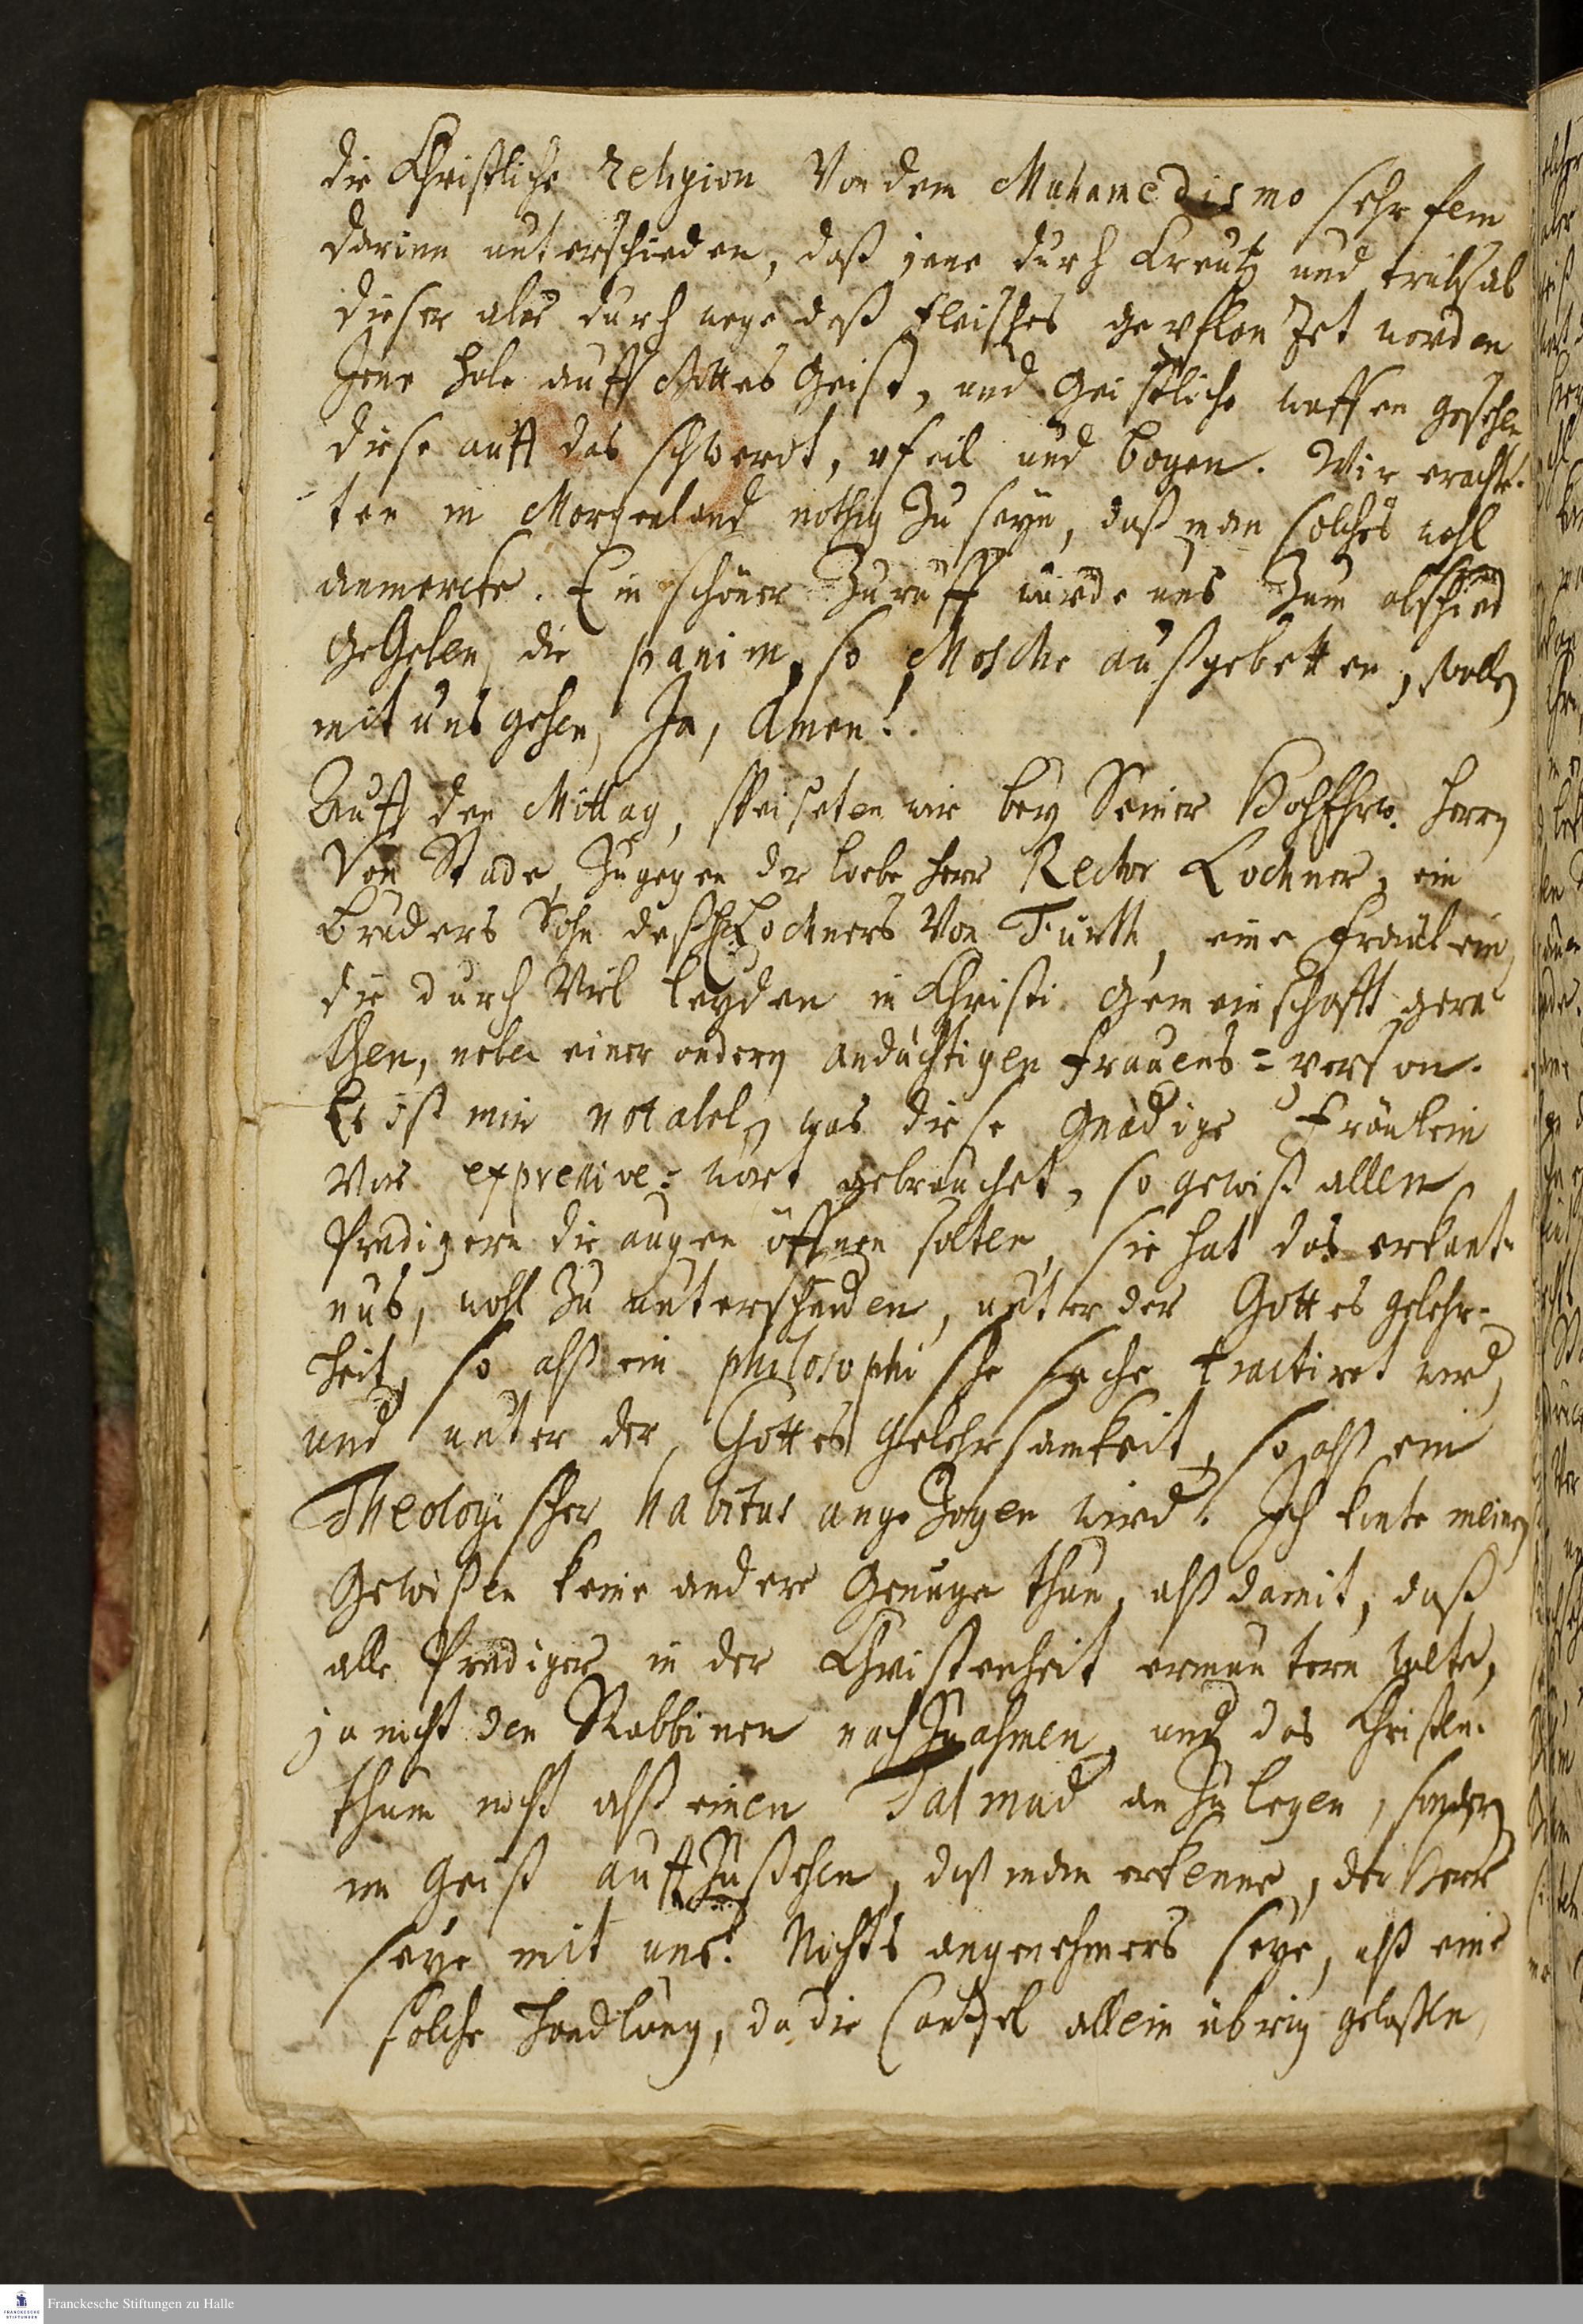 die Christliche religion Von dem Muhamedismo sehr fern
darinn unterschieden, daß jene durch Creutz und trübsal
dieser aber durch wege deß fleisches gepflantzet worden
Jene habe auff Gottes Geist, und Geistliche waffen gesehen
diese auff das schwerdt, pfeil und bogen. Wir erachte-
ten in Morgenland nöthig zu seyn, daß man solches wohl
anmercke. Ein schöner Zuruff wurde uns zum abschied
gegeben, die panim, so Mosche außgebetten, wollen
mit uns gehen, Ja, Amen!
Auff den Mittag, speiseten wir bey Seiner HochEhrw. Herrn
Von Stade, zugegen der liebe Herr Rector Lochner, ein
Bruders Sohn deß H. Lochners Von Fürth, eine Fräulein,
die durch Viel leyden in Christi gemeinschafft gera-
then, neben einer andern andächtigen Frauens=person.
Es ist mir notabel, was diese gnädige Fräulein
Vor expressive- wort gebrauchet, so gewiß allen
Predigern die augen öffnen solten, sie hat das erkant-
nus, wohl zu unterscheiden, unter der Gottes gelehr-
heit, so alß ein philosophische sache tractiret wird,
und unter der Gottes gelehrsamkeit, so alß ein
Theologischer habitus angezogen wird. Ich konte meinem
Gewißen keine andere Genüge thun, alß damit, daß
alle Prediger in der Christenheit ermuntern wolte,
ja nicht den Rabbinen nachzuahmen, und das Christen-
thum nicht alß einen Talmud anzulegen, sondern
im Geist auffzustehen, daß man erkenne, der Herr
seye mit uns. Nichts angenehmers seye, alß eine
solche handlung, da die Cantzel allein übrig gelaßen
Franckesche Stiftungen zu Halle